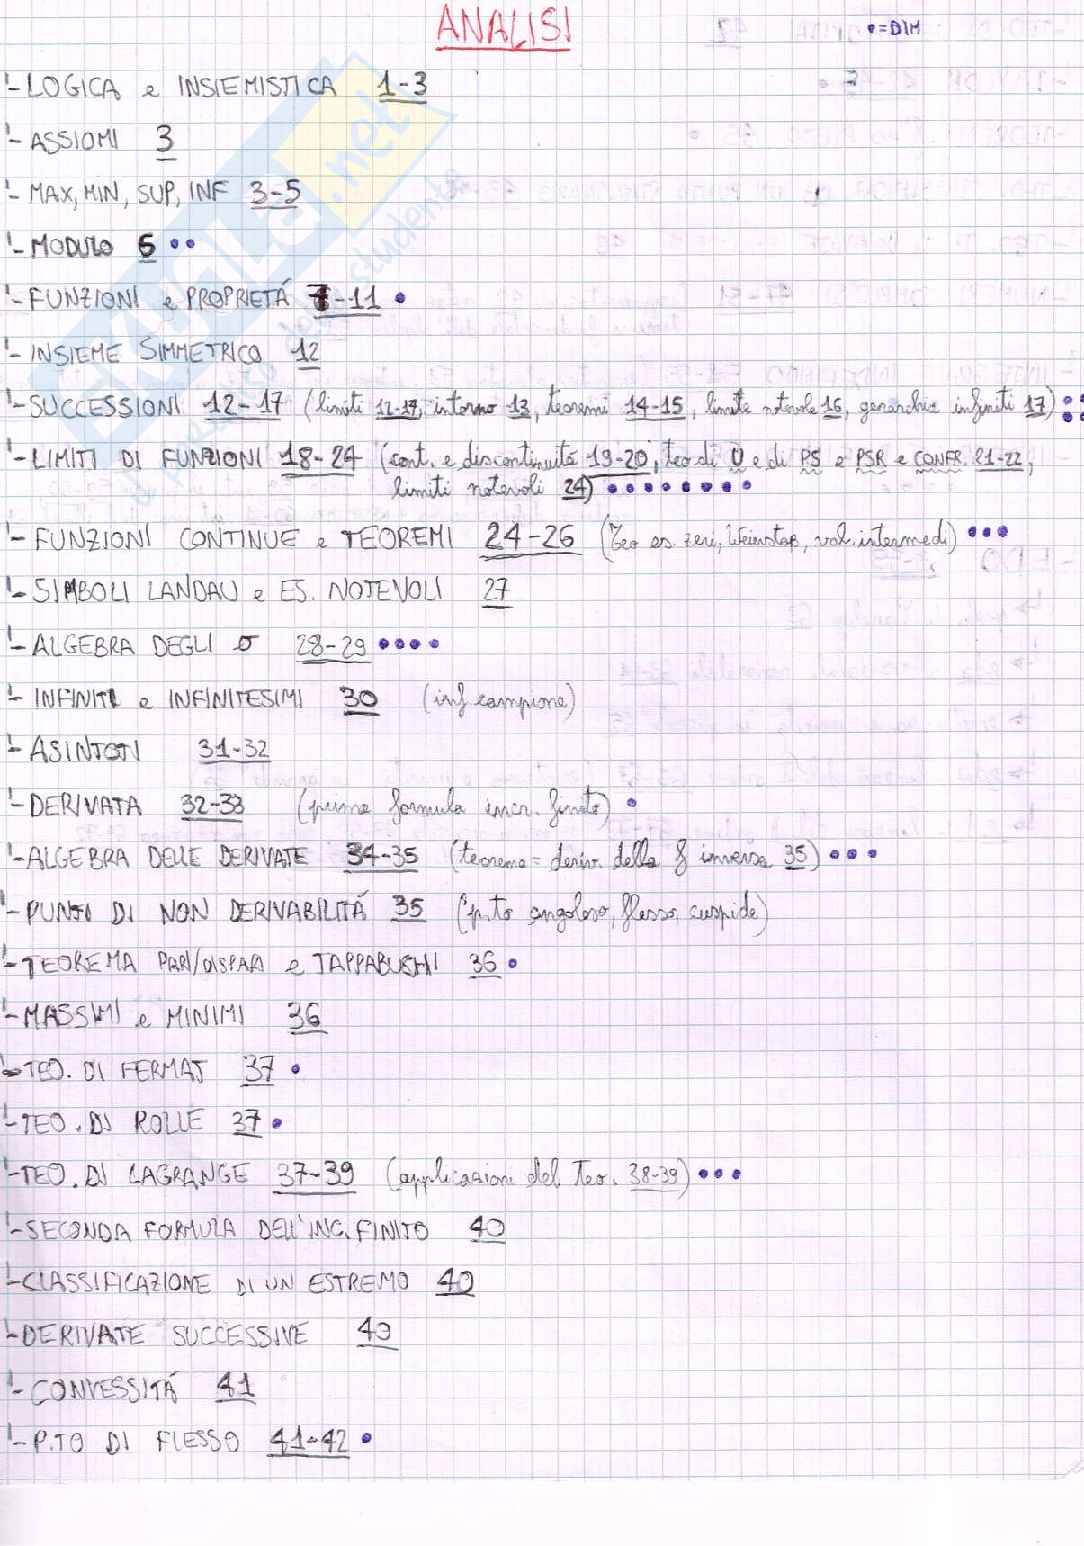 ANALISI
•=DIM
- LOGICA e INSIEMISTICA 1-3
- ASSIOMI 3
- MAX, MIN, SUP, INF 3-5
- MODULO 6 ••
- FUNZIONI e PROPRIETÁ 7-11 •
- INSIEME SIMMETRICO 12
- SUCCESSIONI 12-17 (limiti 12-17, intorno 13, teoremi 14-15, limite notevole 16, gerarchia infiniti 17) ••••
- LIMITI DI FUNZIONI 18-24 (cont. e discontinuitá 19-20, teo di U e di PS e PSR e CONFR. 21-22,
limiti notevoli 24) ••••••••
- FUNZIONI CONTINUE e TEOREMI 24-26 (teo es. zeri, Weierstap, val. intermedi) •••
- SIMBOLI LANDAU e ES. NOTEVOLI 27
- ALGEBRA DEGLI o 28-29 ••••
- INFINITI e INFINITESIMI 30 (inf campione)
- ASINTOTI 31-32
- DERIVATA 32-33 (prima formula incr. finito) •
- ALGEBRA DELLE DERIVATE 34-35 (teorema = deriv. della f inversa 35) •••
- PUNTI DI NON DERIVABILITÁ 35 (p.to angoloso, flesso, cuspide)
- TEOREMA PARI/DISPARI e TAPPABUCHI 36 •
- MASSIMI e MINIMI 36
- TEO. DI FERMAT 37 •
- TEO. DI ROLLE 37 •
- TEO. DI LAGRANGE 37-39 (applicazioni del Teo. 38-39) •••
- SECONDA FORMULA DELL'INC. FINITO 40
- CLASSIFICAZIONE DI UN ESTREMO 40
- DERIVATE SUCCESSIVE 40
- CONVESSITÁ 41
- P.TO DI FLESSO 41-42 •
SKUOLA.net
il paradiso dello studente